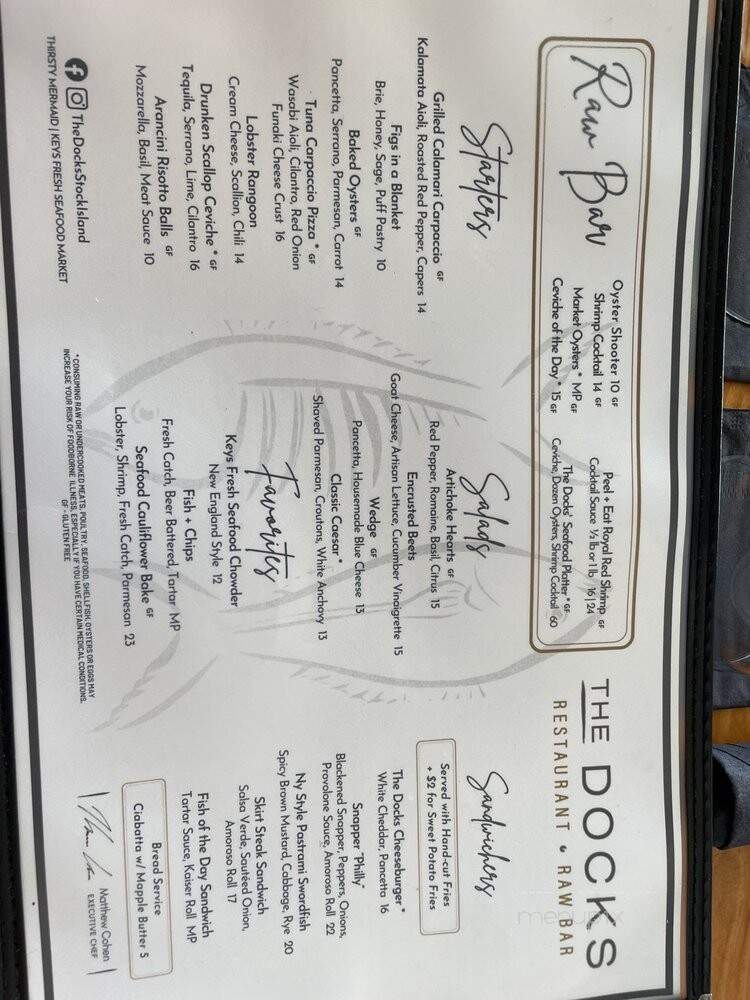 Raw Bar
Oyster Shooter 10 GF
Shrimp Cocktail 14 GF
Market Oysters * MP GF
Ceviche of the Day * 15 GF
Peel + Eat Royal Red Shrimp GF
Cocktail Sauce ½ lb or 1 lb 16 | 24
The Docks' Seafood Platter * GF
Ceviche, Dozen Oysters, Shrimp Cocktail 60
THE DOCKS
RESTAURANT • RAW BAR
Starters
Grilled Calamari Carpaccio GF
Kalamata Aioli, Roasted Red Pepper, Capers 14
Figs in a Blanket
Brie, Honey, Sage, Puff Pastry 10
Baked Oysters GF
Pancetta, Serrano, Parmesan, Carrot 14
Tuna Carpaccio Pizza * GF
Wasabi Aioli, Cilantro, Red Onion
Funaki Cheese Crust 16
Lobster Rangoon
Cream Cheese, Scallion, Chili 14
Drunken Scallop Ceviche * GF
Tequila, Serrano, Lime, Cilantro 16
Arancini Risotto Balls GF
Mozzarella, Basil, Meat Sauce 10
TheDocksStockIsland
THIRSTY MERMAID | KEYS FRESH SEAFOOD MARKET
Salads
Artichoke Hearts GF
Red Pepper, Romaine, Basil, Citrus 15
Encrusted Beets
Goat Cheese, Artisan Lettuce, Cucumber Vinaigrette 15
Wedge GF
Pancetta, Housemade Blue Cheese 13
Classic Caesar *
Shaved Parmesan, Croutons, White Anchovy 13
Favorites
Keys Fresh Seafood Chowder
New England Style 12
Fish + Chips
Fresh Catch, Beer Battered, Tartar MP
Seafood Cauliflower Bake GF
Lobster, Shrimp, Fresh Catch, Parmesan 23
* CONSUMING RAW OR UNDERCOOKED MEATS, POULTRY, SEAFOOD, SHELLFISH, OYSTERS OR EGGS MAY
INCREASE YOUR RISK OF FOODBORNE ILLNESS, ESPECIALLY IF YOU HAVE CERTAIN MEDICAL CONDITIONS.
GF - GLUTEN FREE
Sandwiches
Served with Hand-cut Fries
+ $2 for Sweet Potato Fries
The Docks Cheeseburger *
White Cheddar, Pancetta 16
Snapper "Philly"
Blackened Snapper, Peppers, Onions,
Provolone Sauce, Amoroso Roll 22
Ny Style Pastrami Swordfish
Spicy Brown Mustard, Cabbage, Rye 20
Skirt Steak Sandwich
Salsa Verde, Sautéed Onion,
Amoroso Roll 17
Fish of the Day Sandwich
Tartar Sauce, Kaiser Roll MP
Bread Service
Ciabatta w/ Mapple Butter 5
Matthew Cohen
EXECUTIVE CHEF